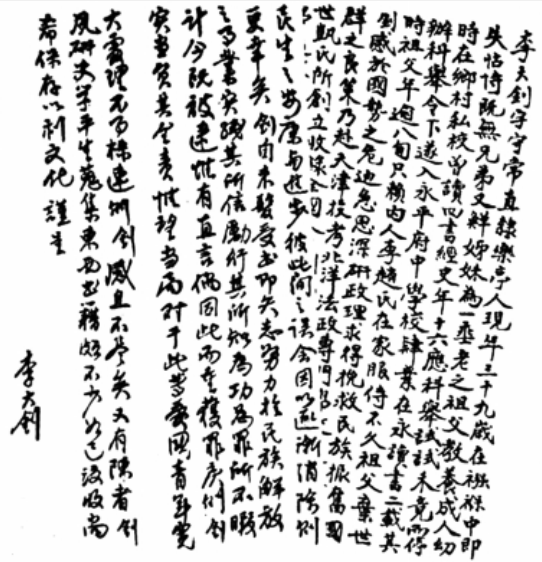 李大釗字守常直隸樂亭人現年三十九歲在襁褓中即
失怙恃既無兄弟又鮮姊妹為一垂老之祖父教養成人幼
時在鄉村私校曾讀四書經史年十六應科舉試試未竟而停
辦科舉令下遂入永平府中學校肄業在永讀書二載其
時祖父年逾八旬只賴內人李趙氏在家服侍不久祖父棄世
釗感於國勢之危迫急思深研政理求得挽救民族振奮國
群之良策乃赴天津投考北洋法政專門
世凱氏所創立收錄全國
民生之安康與進步彼此間之誤會因以逐漸消除則
更幸矣釗自束髮受書即矢志努力於民族解放
之事業實踐其所信勵行其所知為功為罪所不暇
計今既被逮惟有直言倘因此而重獲罪戾則釗
實當負其全責惟望當局對于此等愛國青年寬
大處理不事株連則釗感且不盡矣又有陳者釗
夙研史學平生蒐集東西書籍頗不少如已沒收尚
希保存以利文化謹呈
李大釗